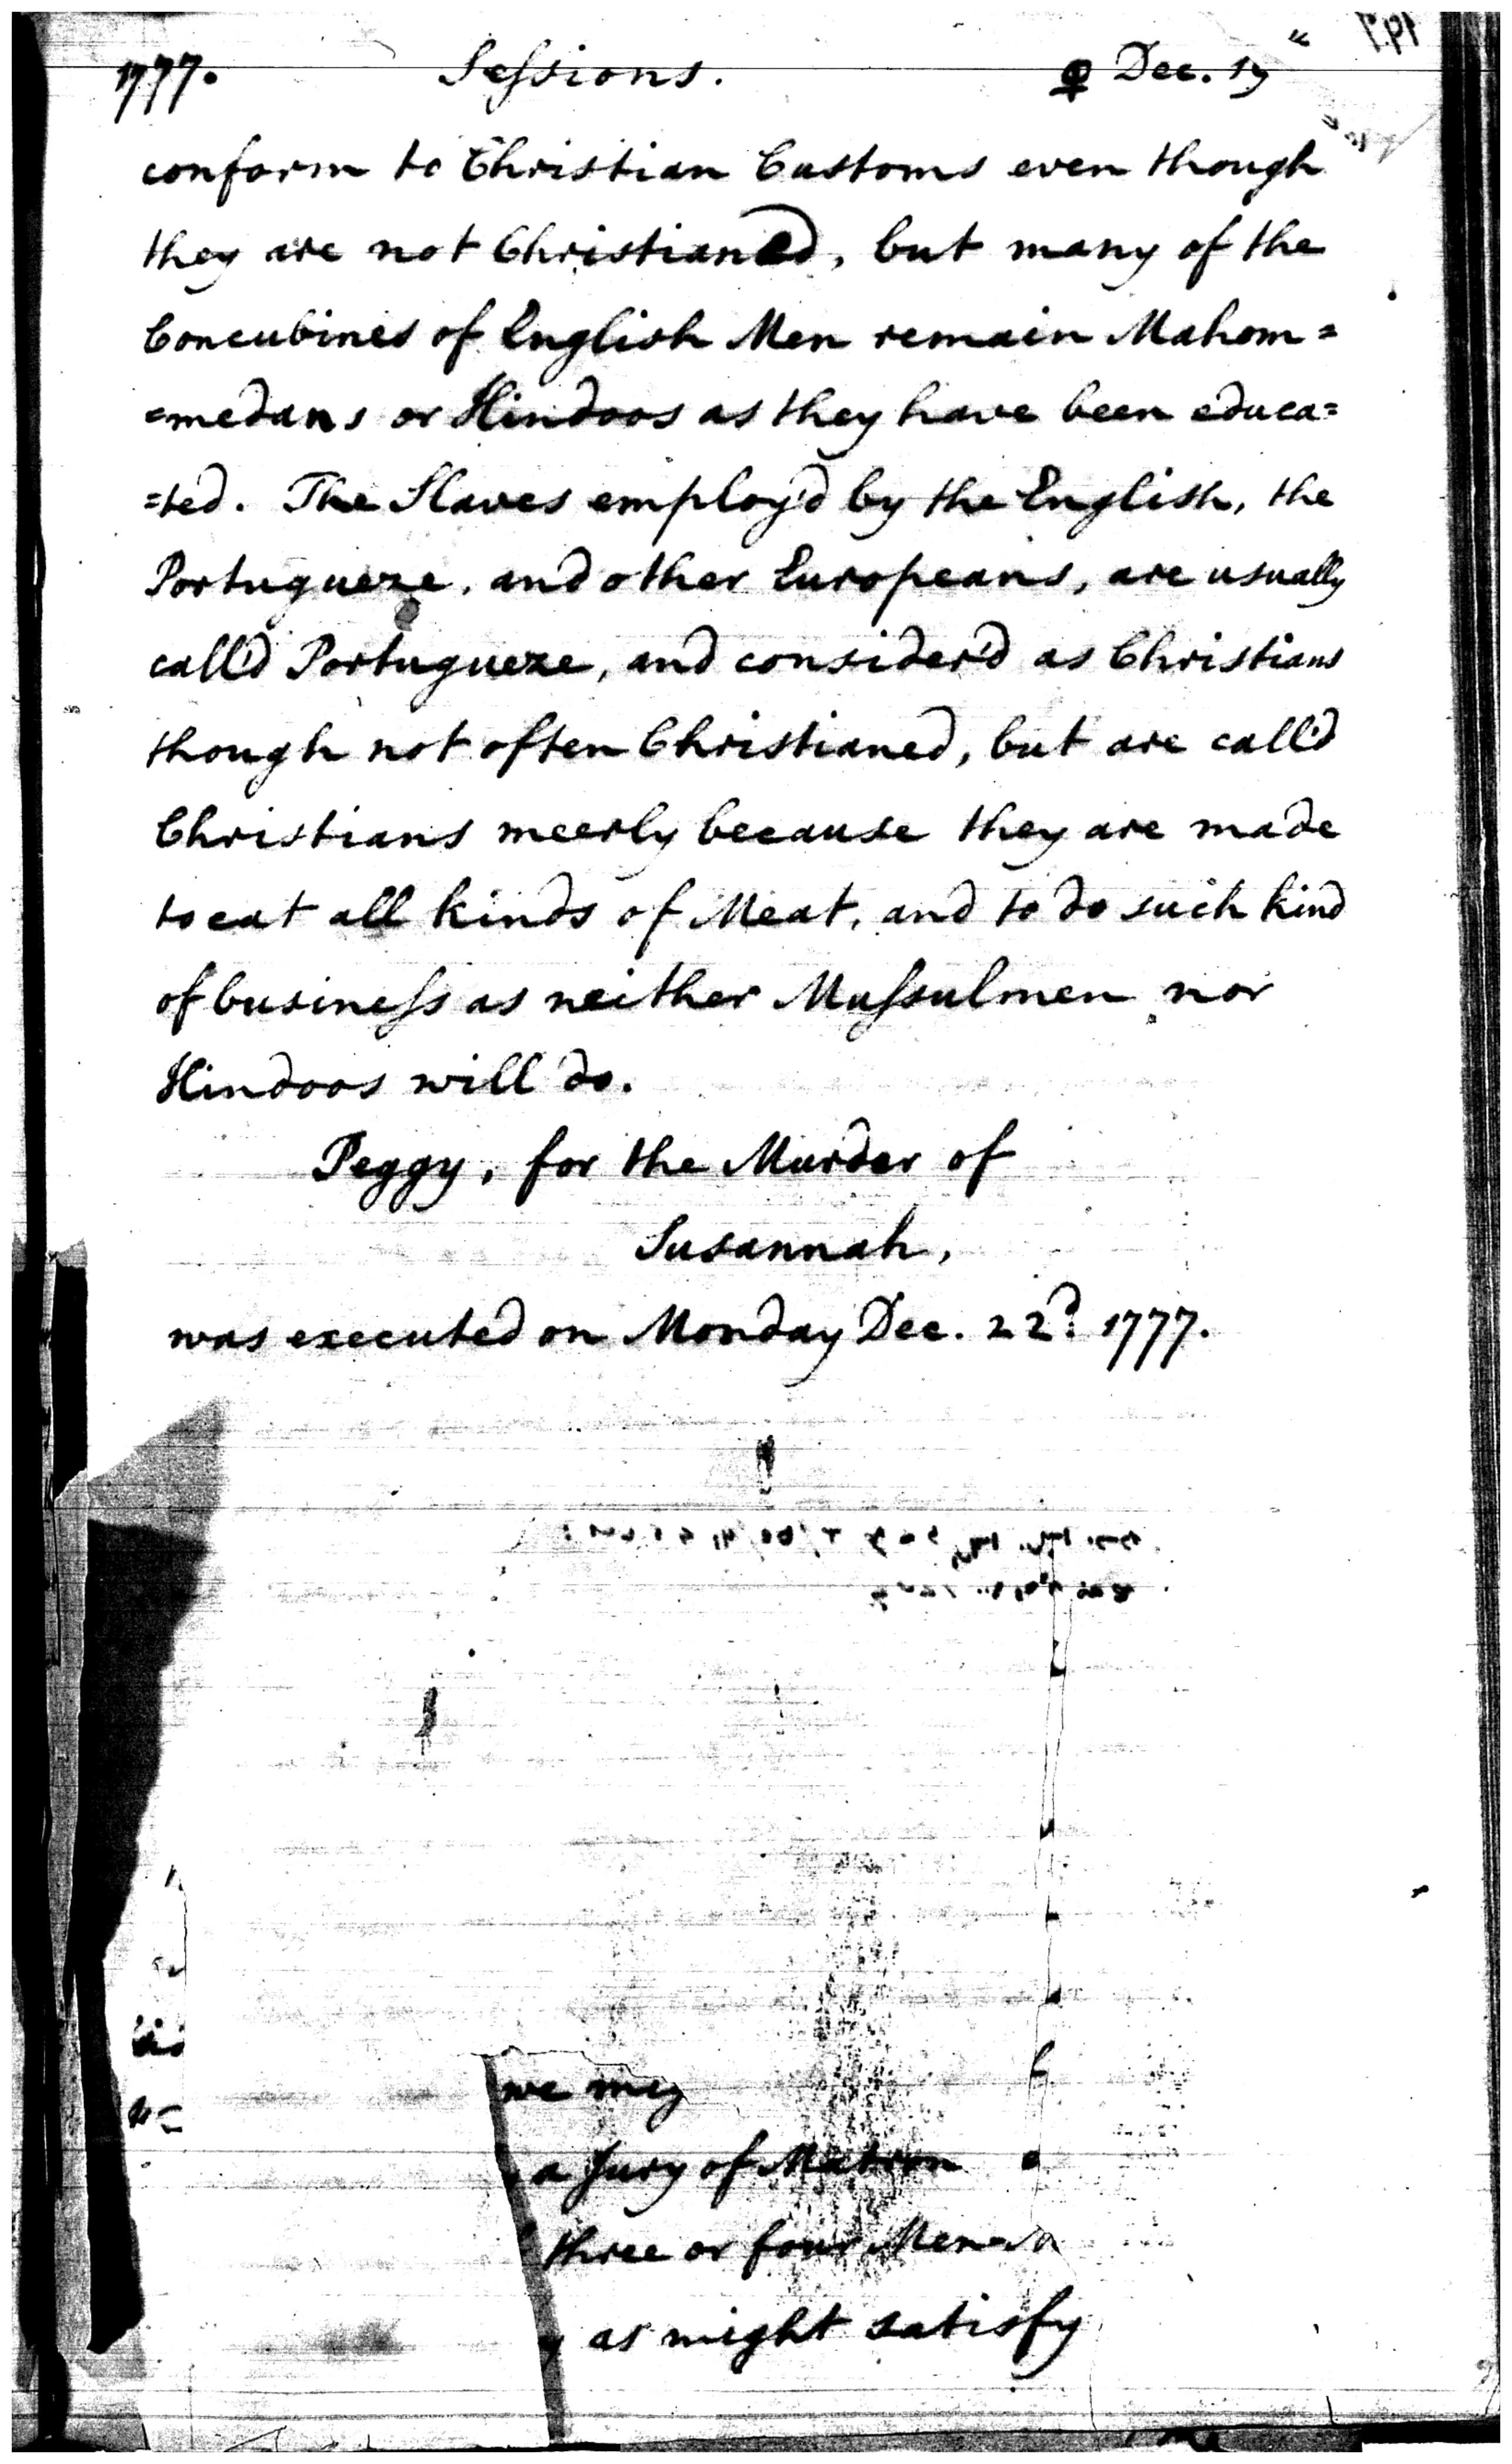 1777. Sessions. ♀ Dec. 19
conform to Christian Customs even though
they are not Christianed, but many of the
Concubines of English Men remain Mahom=
=medans or Hindoos as they have been educa=
=ted. The Slaves employ'd by the English, the
Portugueze, and other Europeans, are usually
call'd Portugueze, and consider'd as Christians
though not often Christianed, but are call'd
Christians meerly because they are made
to eat all kinds of Meat, and to do such kind
of business as neither Mussulmen nor
Hindoos will do.
Peggy, for the Murder of
Susannah,
was executed on Monday Dec. 22d. 1777.
we may
a Jury of Matron
three or four Men
as might satisfy